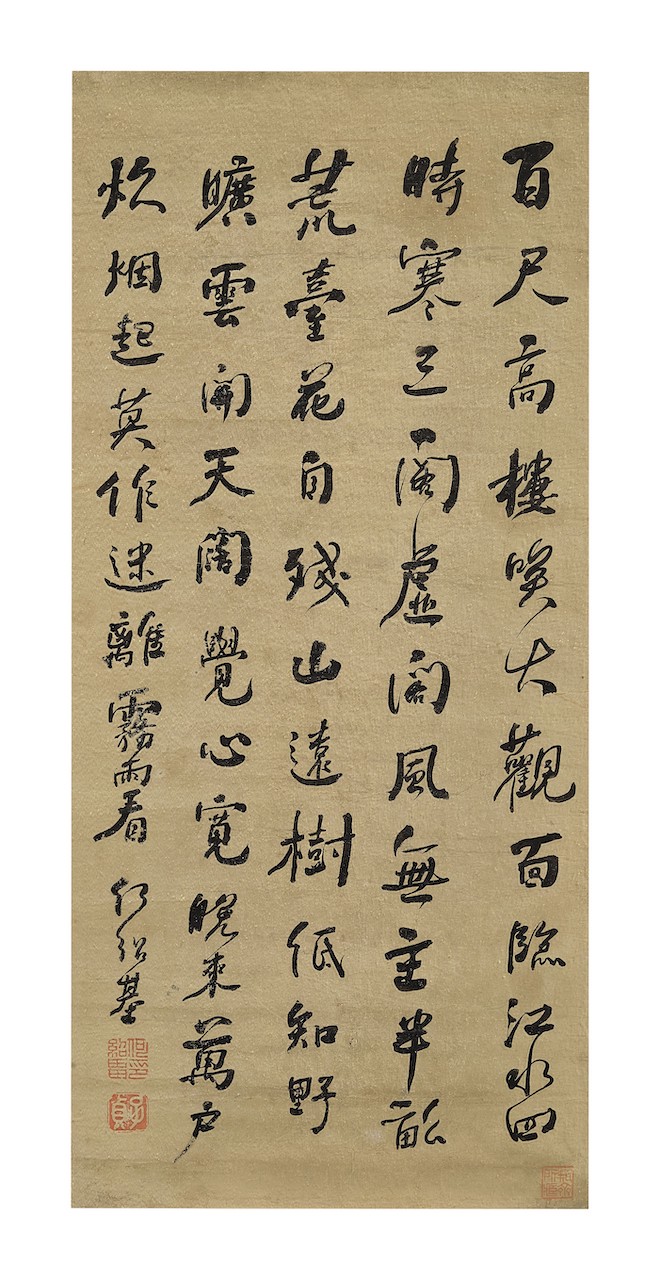 百尺高樓喚大觀面臨江水四
時寒三間虛閣風無主半畝
荒臺花自殘山遠樹低知野
曠雲開天闊覺心寬晚來萬戶
炊烟起莫作迷離霧雨看 何紹基
何紹基印
子貞